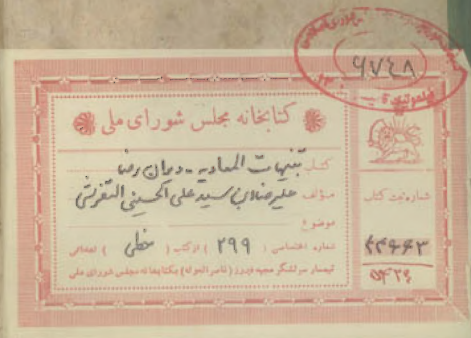 ۹۷۴۸
کتابخانه مجلس شورای ملی
کتاب تنبیهات المعادیه - دیوان رضا
مؤلف علیرضا بن سید علی الحسینی التفرشی
موضوع
شماره اختصاصی ( ۲۹۹ ) از کتب ( خطی ) اهدائی
تیمسار سرلشکر مجید فیروز (ناصرالدوله) بکتابخانه مجلس شورای ملی
شماره ثبت کتاب